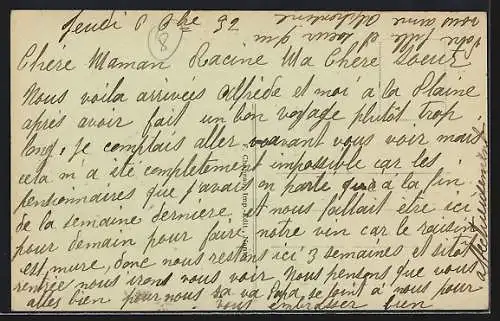 Jeudi 8 Obre 32
8
Chère Maman Racine Ma Chère Soeur
Nous voila arrivées Alfrède et moi a la Plaine
après avoir fait un bon voyage plutôt trop
long, je comptais aller avant vous voir mais
cela m'a été completement impossible car les
pensionnaires que j'avais en parte qu'a la fin
de la semaine dernière et nous fallait être ici
pour demain pour faire notre vin car le raisin
est mure, donc nous restons ici 3 semaines et sitôt
rentrée nous irons vous voir Nous pensons que vous
alles bien pour nous sa va Papa se joint à nous pour
vous embrasser bien
affectueusement
votre fille et soeur qui
vous aime